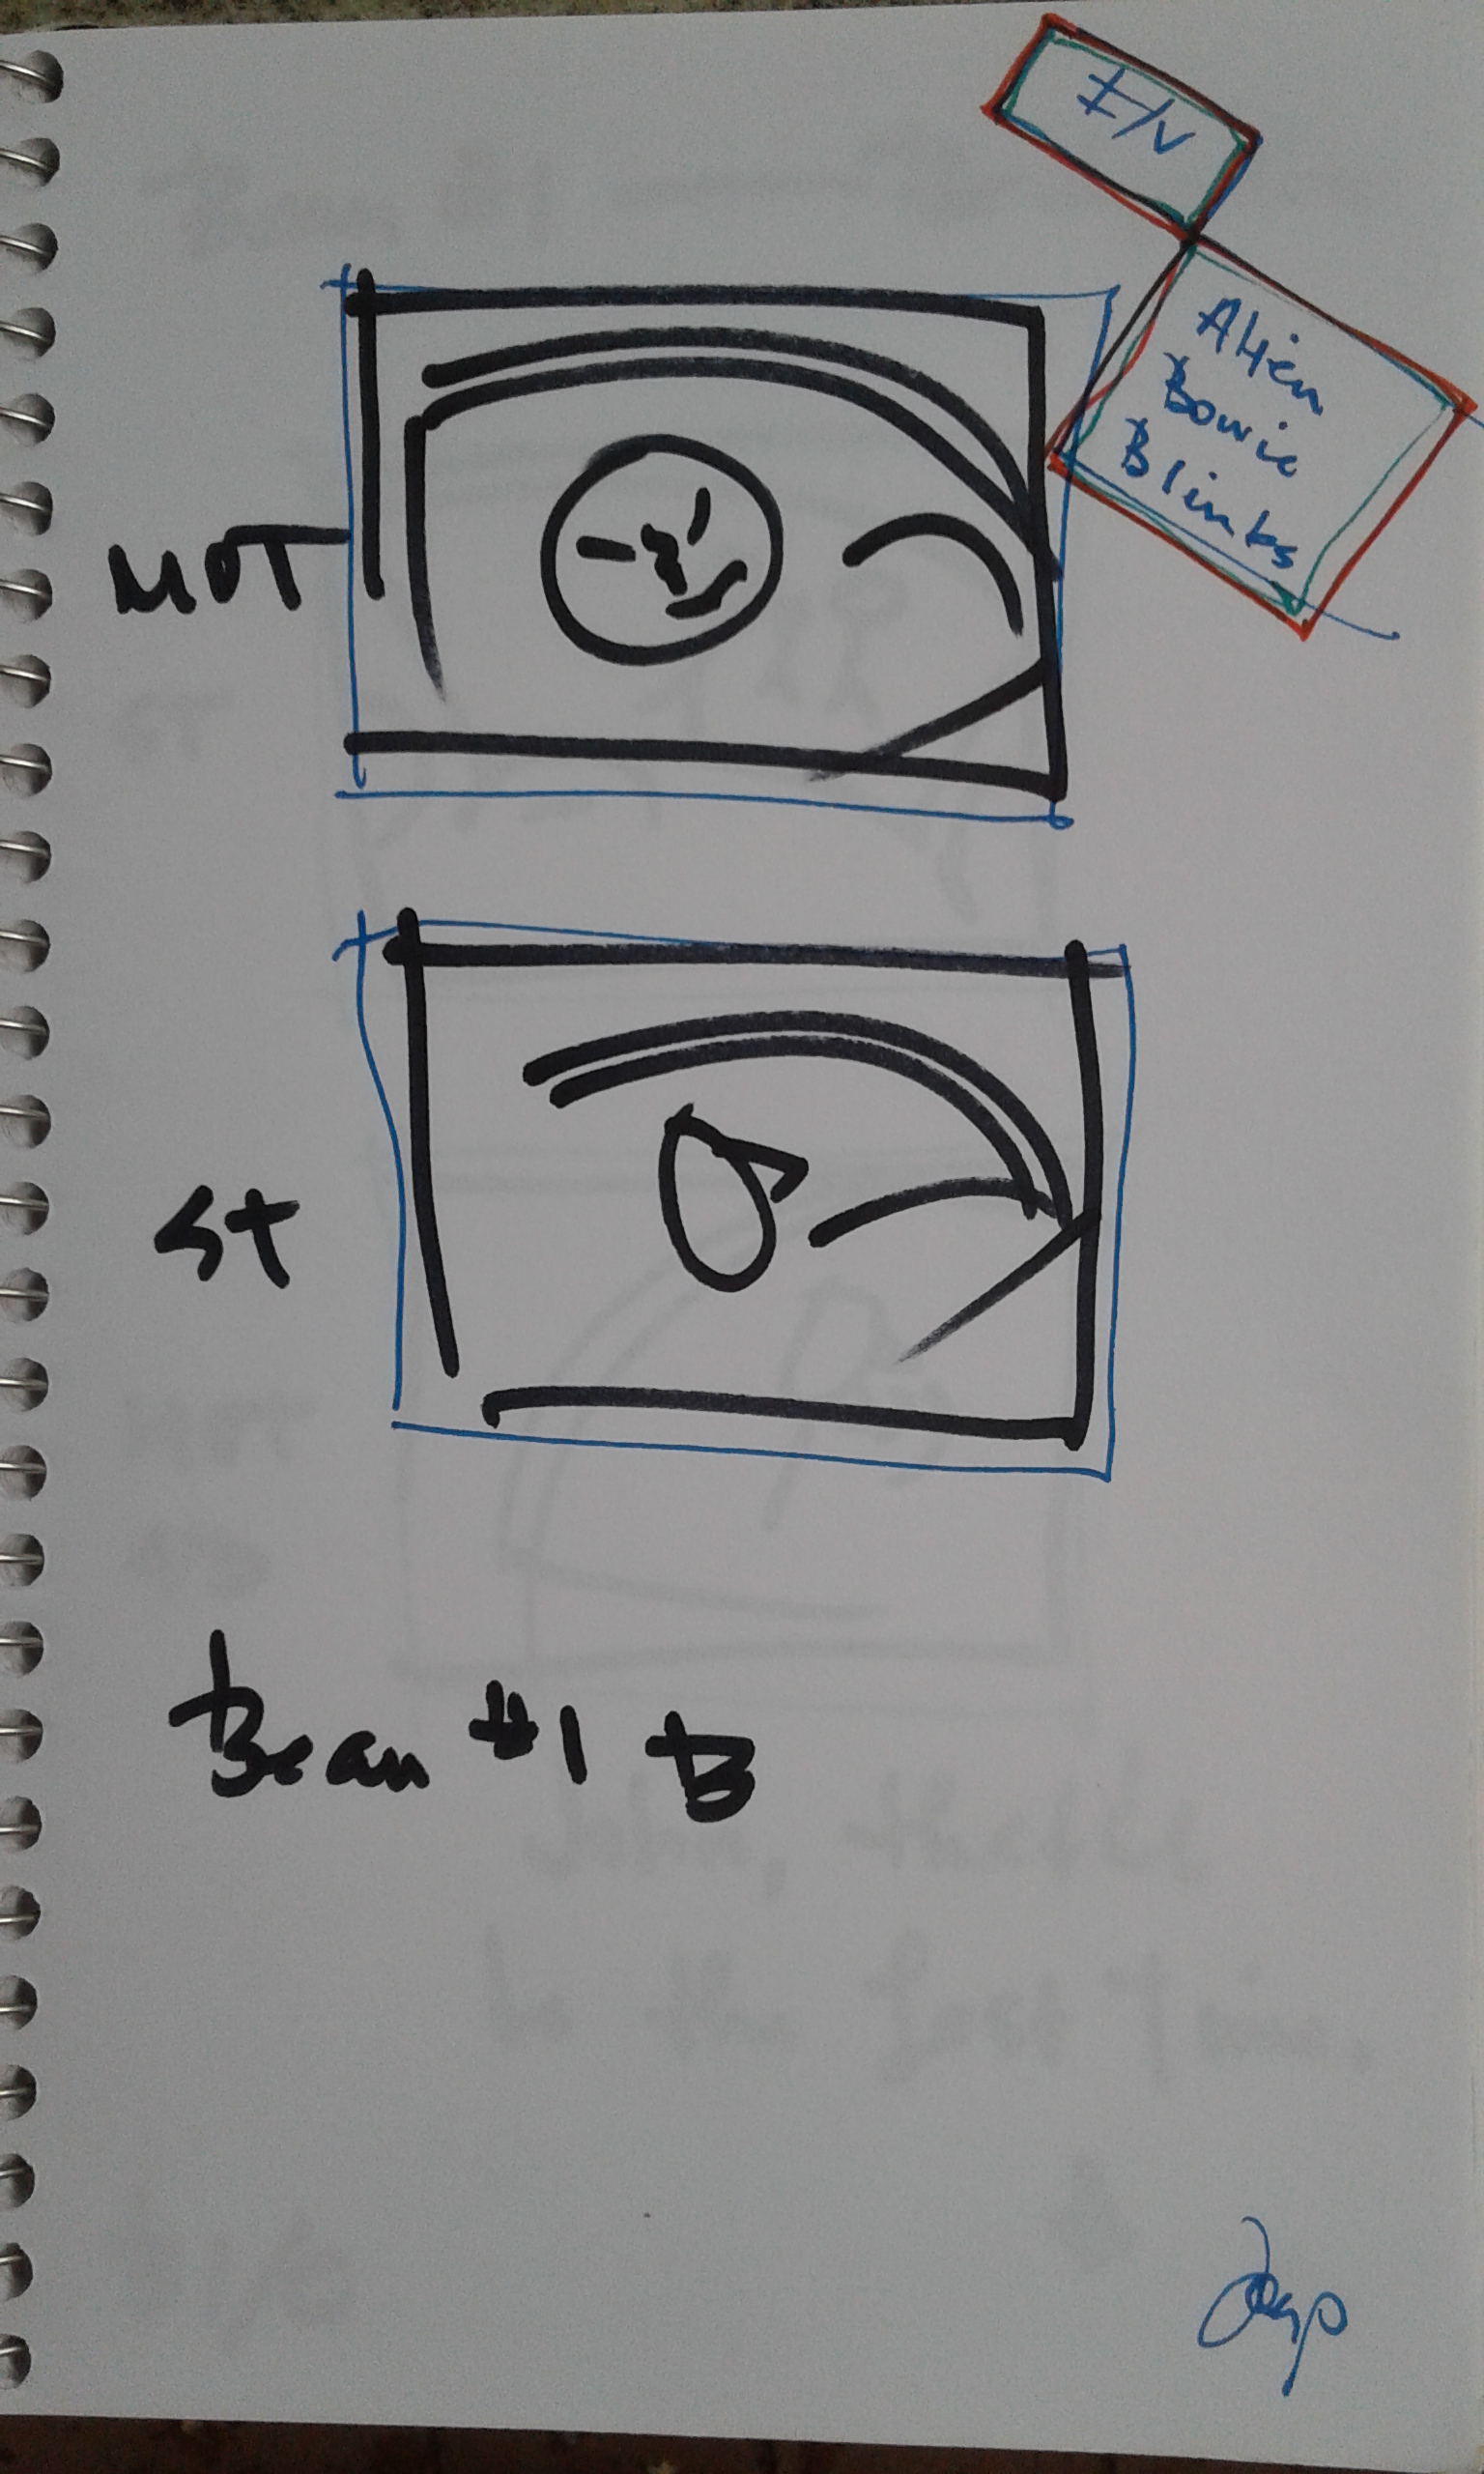 Alien
Bowie
Blinks
MOT
St
Bean #1 B